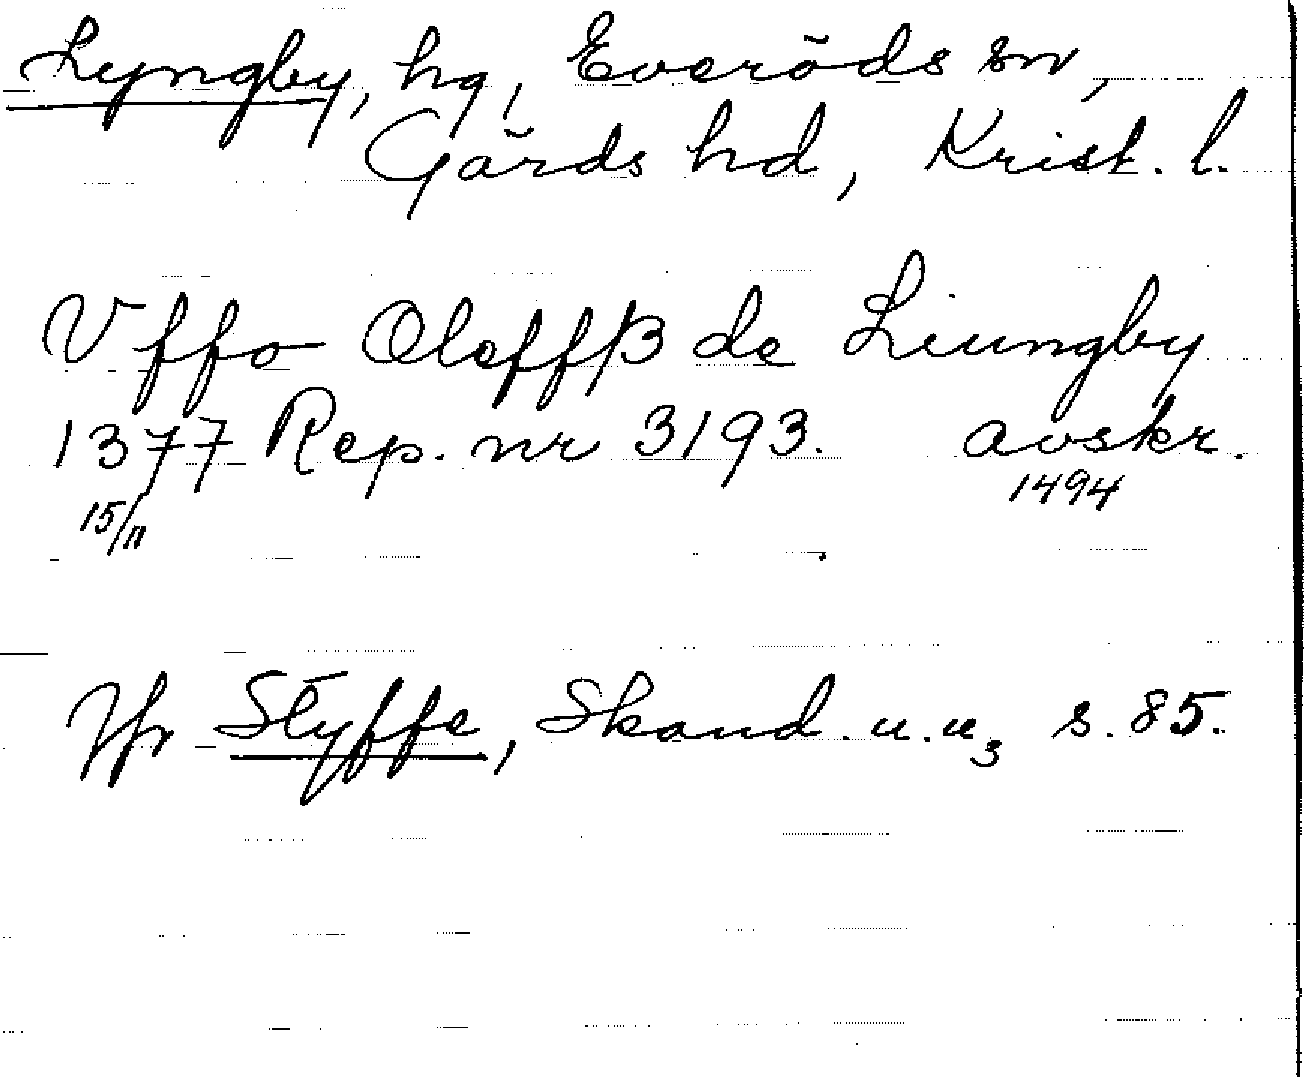 Lyngby, hg, Everöds sn,
Gärds hd, Krist. l.
Vffo Oleffß de Liungby
1377 Rep. nr 3193. avskr.
15/11 1494
Jfr Styffe, Skand. u. u3 s. 85.